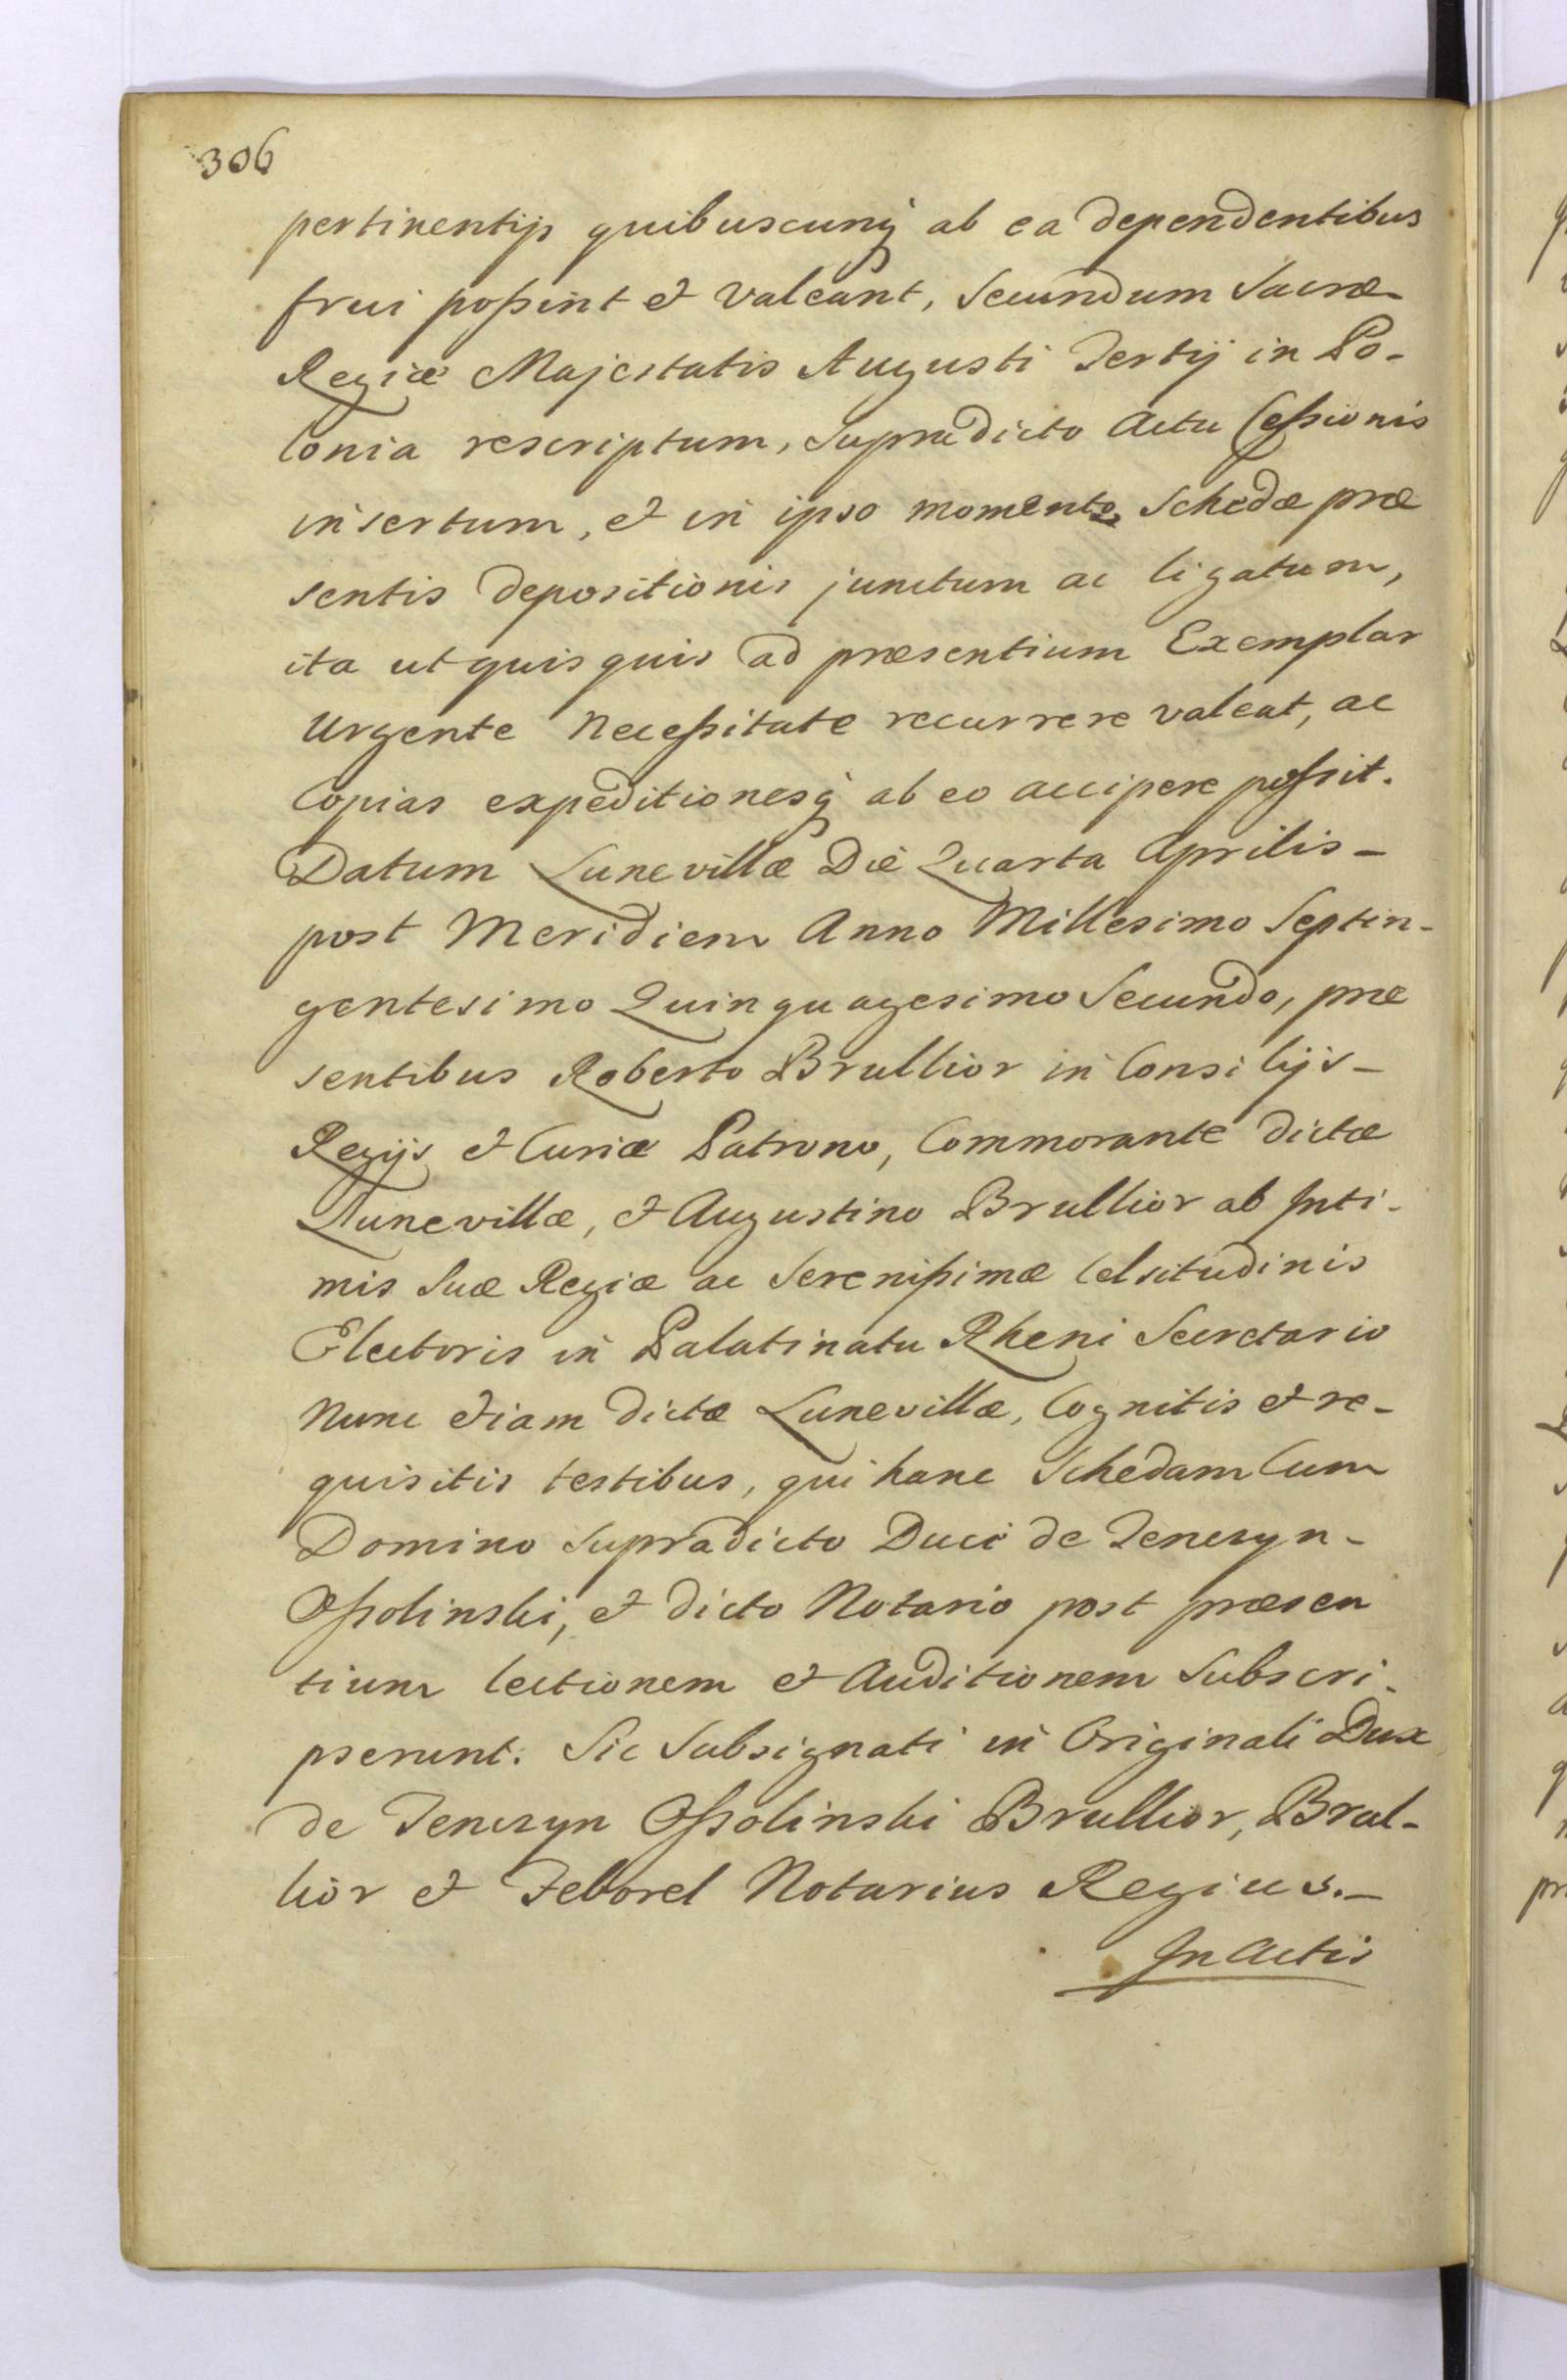 306
pertinentijs quibuscunq ab ea dependentibus
frui possint et valeant, Secundum Sacræ
Regiæ Majestatis Augusti Tertij in Po-
lonia rescriptum, Supradicto Actu Cessionis
insertum, et in ipso momento Schedæ præ
sentis depositionis junctum ac ligatum,
ita ut quisquis ad præsentium Exemplar
Urgente Necessitate recurrere valeat, ac
Copias expeditionesq ab eo accipere possit.
Datum Lunevillæ Die Quarta Aprilis -
post Meridiem Anno Millesimo Septin-
gentesimo Quinquagesimo Secundo, præ
sentibus Roberto Brullior in Consilijs -
Regijs et Curiæ Patrono, Commorante dictæ
Lunevillæ, et Augustino Brullior ab Inti-
mis Suæ Regiæ ac Serenissimæ Celsitudinis
Electoris in Palatinatu Rheni Secretario
Nunc etiam dictæ Lunevillæ, Cognitis et re-
quisitis testibus, qui hanc Schedam Cum
Domino Supradicto Duci de Tenczyn -
Ossolinski, et dicto Notario post præsen
tium lectionem et Auditionem Subscri-
pserunt. Sic Subsignati in Originali Dux
de Tenczyn Ossolinski Brullior, Brul-
lior et Febvrel Notarius Regius. -
In Actis